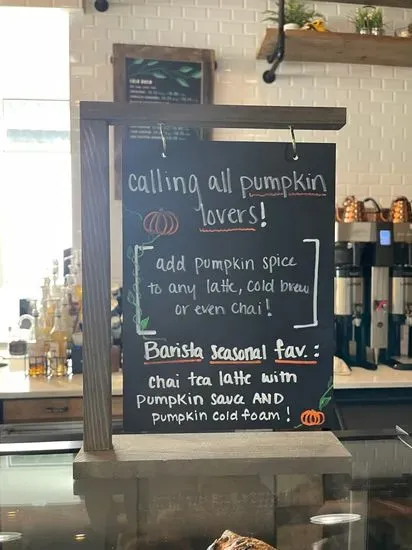 calling all pumpkin
lovers!
add pumpkin spice
to any latte, cold brew
or even chai!
Barista seasonal fav.:
chai tea latte with
pumpkin sauce AND
pumpkin cold foam!
COLD BREW